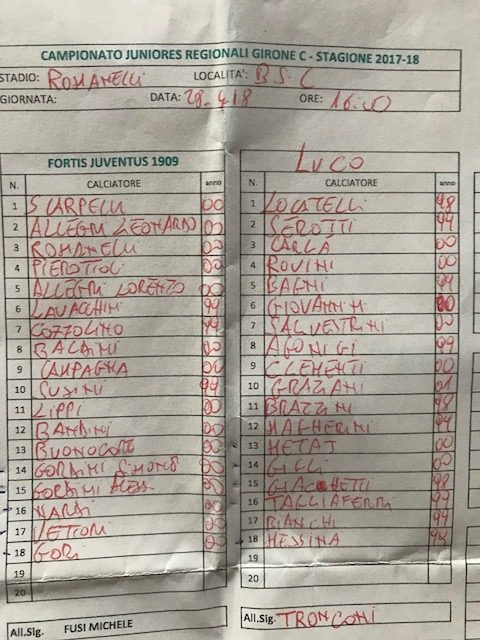 CAMPIONATO JUNIORES REGIONALI GIRONE C - STAGIONE 2017-18
STADIO: ROMANELLI LOCALITA': B.S.L
GIORNATA: DATA: 28.4.18 ORE: 16.00
FORTIS JUVENTUS 1909
N. CALCIATORE anno
1 SCARPELLI 00
2 ALLEGRI LEONARDO 00
3 ROMANELLI 00
4 PIEROTTOLI 00
5 ALLEGRI LORENZO 00
6 LAVACCHINI 99
7 COZZOLINO 99
8 BALDINI 00
9 CAMPAGNA 00
10 SUSINI 99
11 LIPPI 00
12 BANDINI 00
13 BUONOCORE 00
14 GORDINI SIMONE 00
15 GORDINI ALESS. 00
16 NARDI 00
17 VETTORI 00
18 GORI 00
19
20
All.Sig. FUSI MICHELE
LUCO
N. CALCIATORE anno
1 LOCATELLI 98
2 SEROTTI 99
3 CARLÀ 00
4 ROVINI 00
5 BAGNI 99
6 GIOVANNINI 00
7 SALVESTRINI 00
8 AGONIGI 99
9 CLEMENTI 00
10 GRAZIANI 01
11 BRAZZINI 98
12 MAGHERINI 99
13 METAJ 00
14 GILLI 00
15 GIACHETTI 98
16 TAGLIAFERRI 99
17 BIANCHI 99
18 MESSINA 99
19
20
All.Sig. TRONCONI